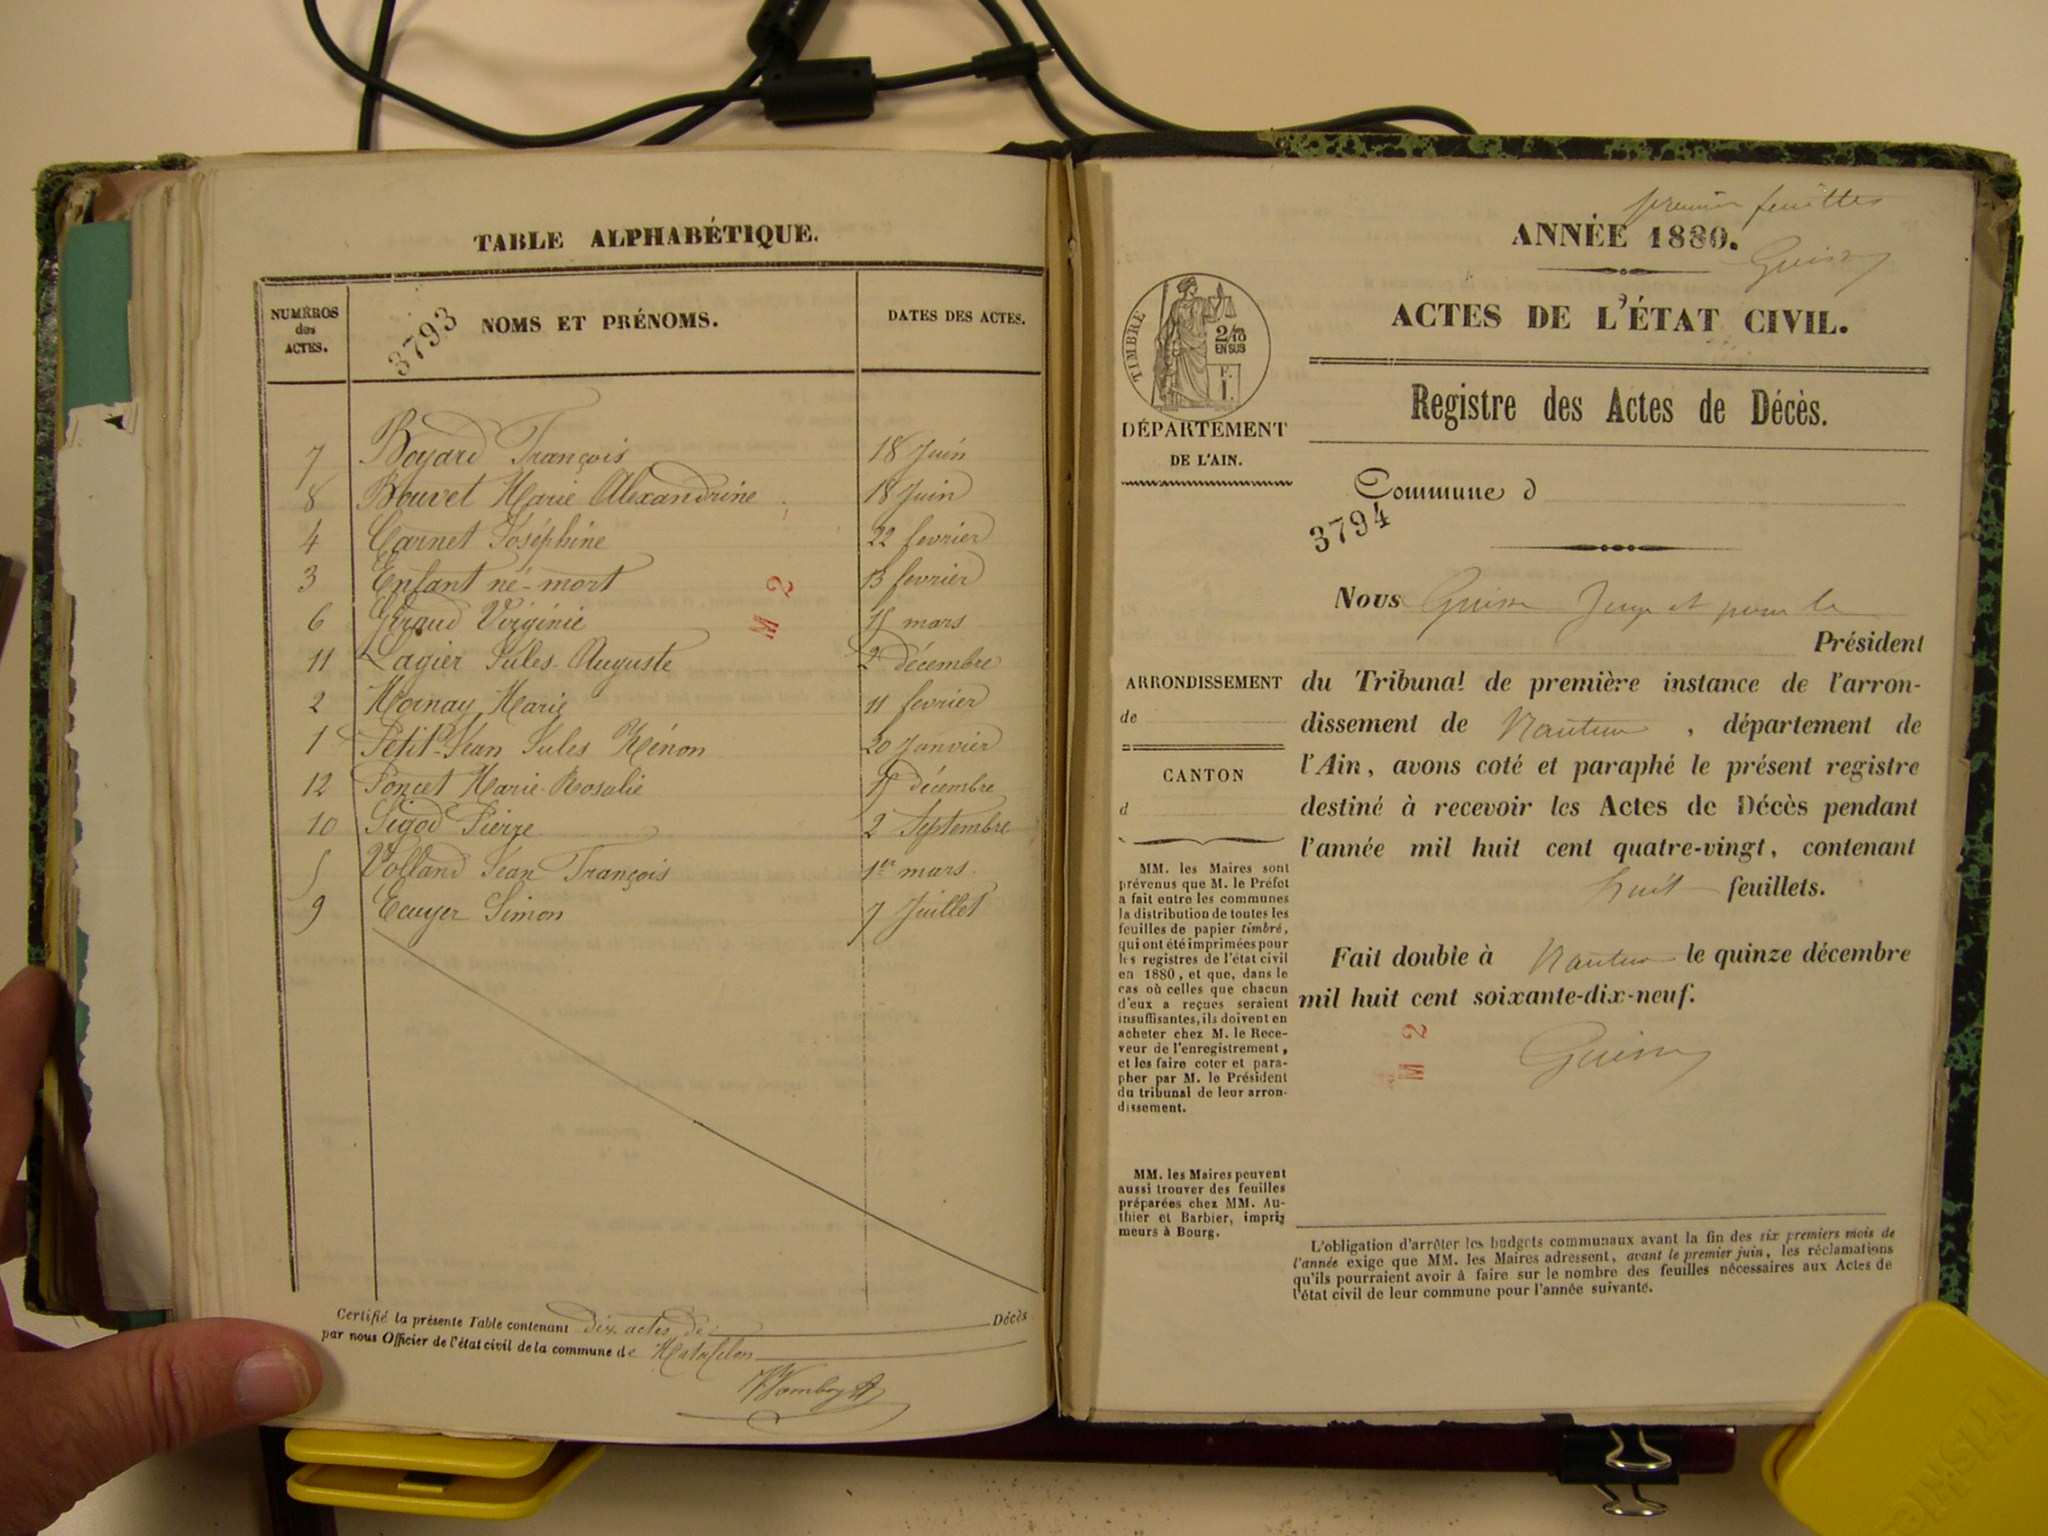 TABLE ALPHABÉTIQUE.
NUMÉROS
des
ACTES.
3793
NOMS ET PRÉNOMS.
DATES DES ACTES.
7 Boyard François 18 Juin
8 Bouvet Marie Alexandrine 18 Juin
4 Carnet Joséphine 22 fevrier
3 Enfant né-mort 13 fevrier
6 Géraud Virginie 15 mars
11 Lagier Jules Auguste 2 décembre
2 Mornay Marie 11 fevrier
1 Petit-Jean Jules Zénon 20 Janvier
12 Poncet Marie-Rosalie 15 décembre
10 Sigod Pierre 2 Septembre
5 Volland Jean François 1er mars.
9 Ecuyer Simon 7 Juillet
M 2
Certifié la présente Table contenant dix actes de Décès
par nous Officier de l'état civil de la commune de Matafelon
premier feuillet
ANNÉE 1880.
ACTES DE L'ÉTAT CIVIL.
Registre des Actes de Décès.
TIMBRE
2/10
EN SUS
F.
1.
DÉPARTEMENT
DE L'AIN.
Commune d
3794
Nous Juge et pour le
Président
du Tribunal de première instance de l'arron-
dissement de Nantua, département de
l'Ain, avons coté et paraphé le présent registre
destiné à recevoir les Actes de Décès pendant
l'année mil huit cent quatre-vingt, contenant
huit feuillets.
Fait double à Nantua le quinze décembre
mil huit cent soixante-dix-neuf.
M 2
ARRONDISSEMENT
de
CANTON
d
MM. les Maires sont
prévenus que M. le Préfet
a fait entre les communes
la distribution de toutes les
feuilles de papier timbré,
qui ont été imprimées pour
les registres de l'état civil
en 1880, et que, dans le
cas où celles que chacun
d'eux a reçues seraient
insuffisantes, ils doivent en
acheter chez M. le Rece-
veur de l'enregistrement,
et les faire coter et para-
pher par M. le Président
du tribunal de leur arron-
dissement.
MM. les Maires peuvent
aussi trouver des feuilles
préparées chez MM. Au-
thier et Barbier, impri-
meurs à Bourg.
L'obligation d'arrêter les budgets communaux avant la fin des six premiers mois de
l'année exige que MM. les Maires adressent, avant le premier juin, les réclamations
qu'ils pourraient avoir à faire sur le nombre des feuilles nécessaires aux Actes de
l'état civil de leur commune pour l'année suivante.